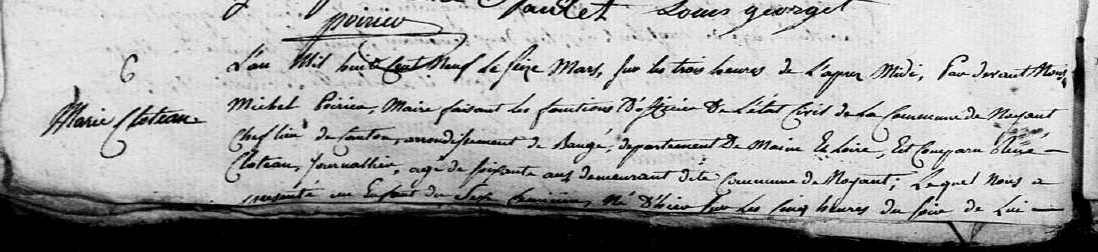 Louis georget
poirier
6
L'an Mil huit Cent Neuf Le seize Mars, sur les trois heures de L'apres Midi, Par devant Nous
Marie Cloteau
Michel Poirier, Maire faisant les fonctions D'officier De L'état Civil de La Commune de Noyant
Chef lieu de Canton, arrondissement de Baugé, departement De Maine Et Loire, Est Comparu
Cloteau, Journallier, agé de soixante ans demeurant dite Commune de Noyant; Lequel Nous a
presenté un Enfant du Sexe feminin, Né D'hier sur Les Cinq heures du soir de Lui